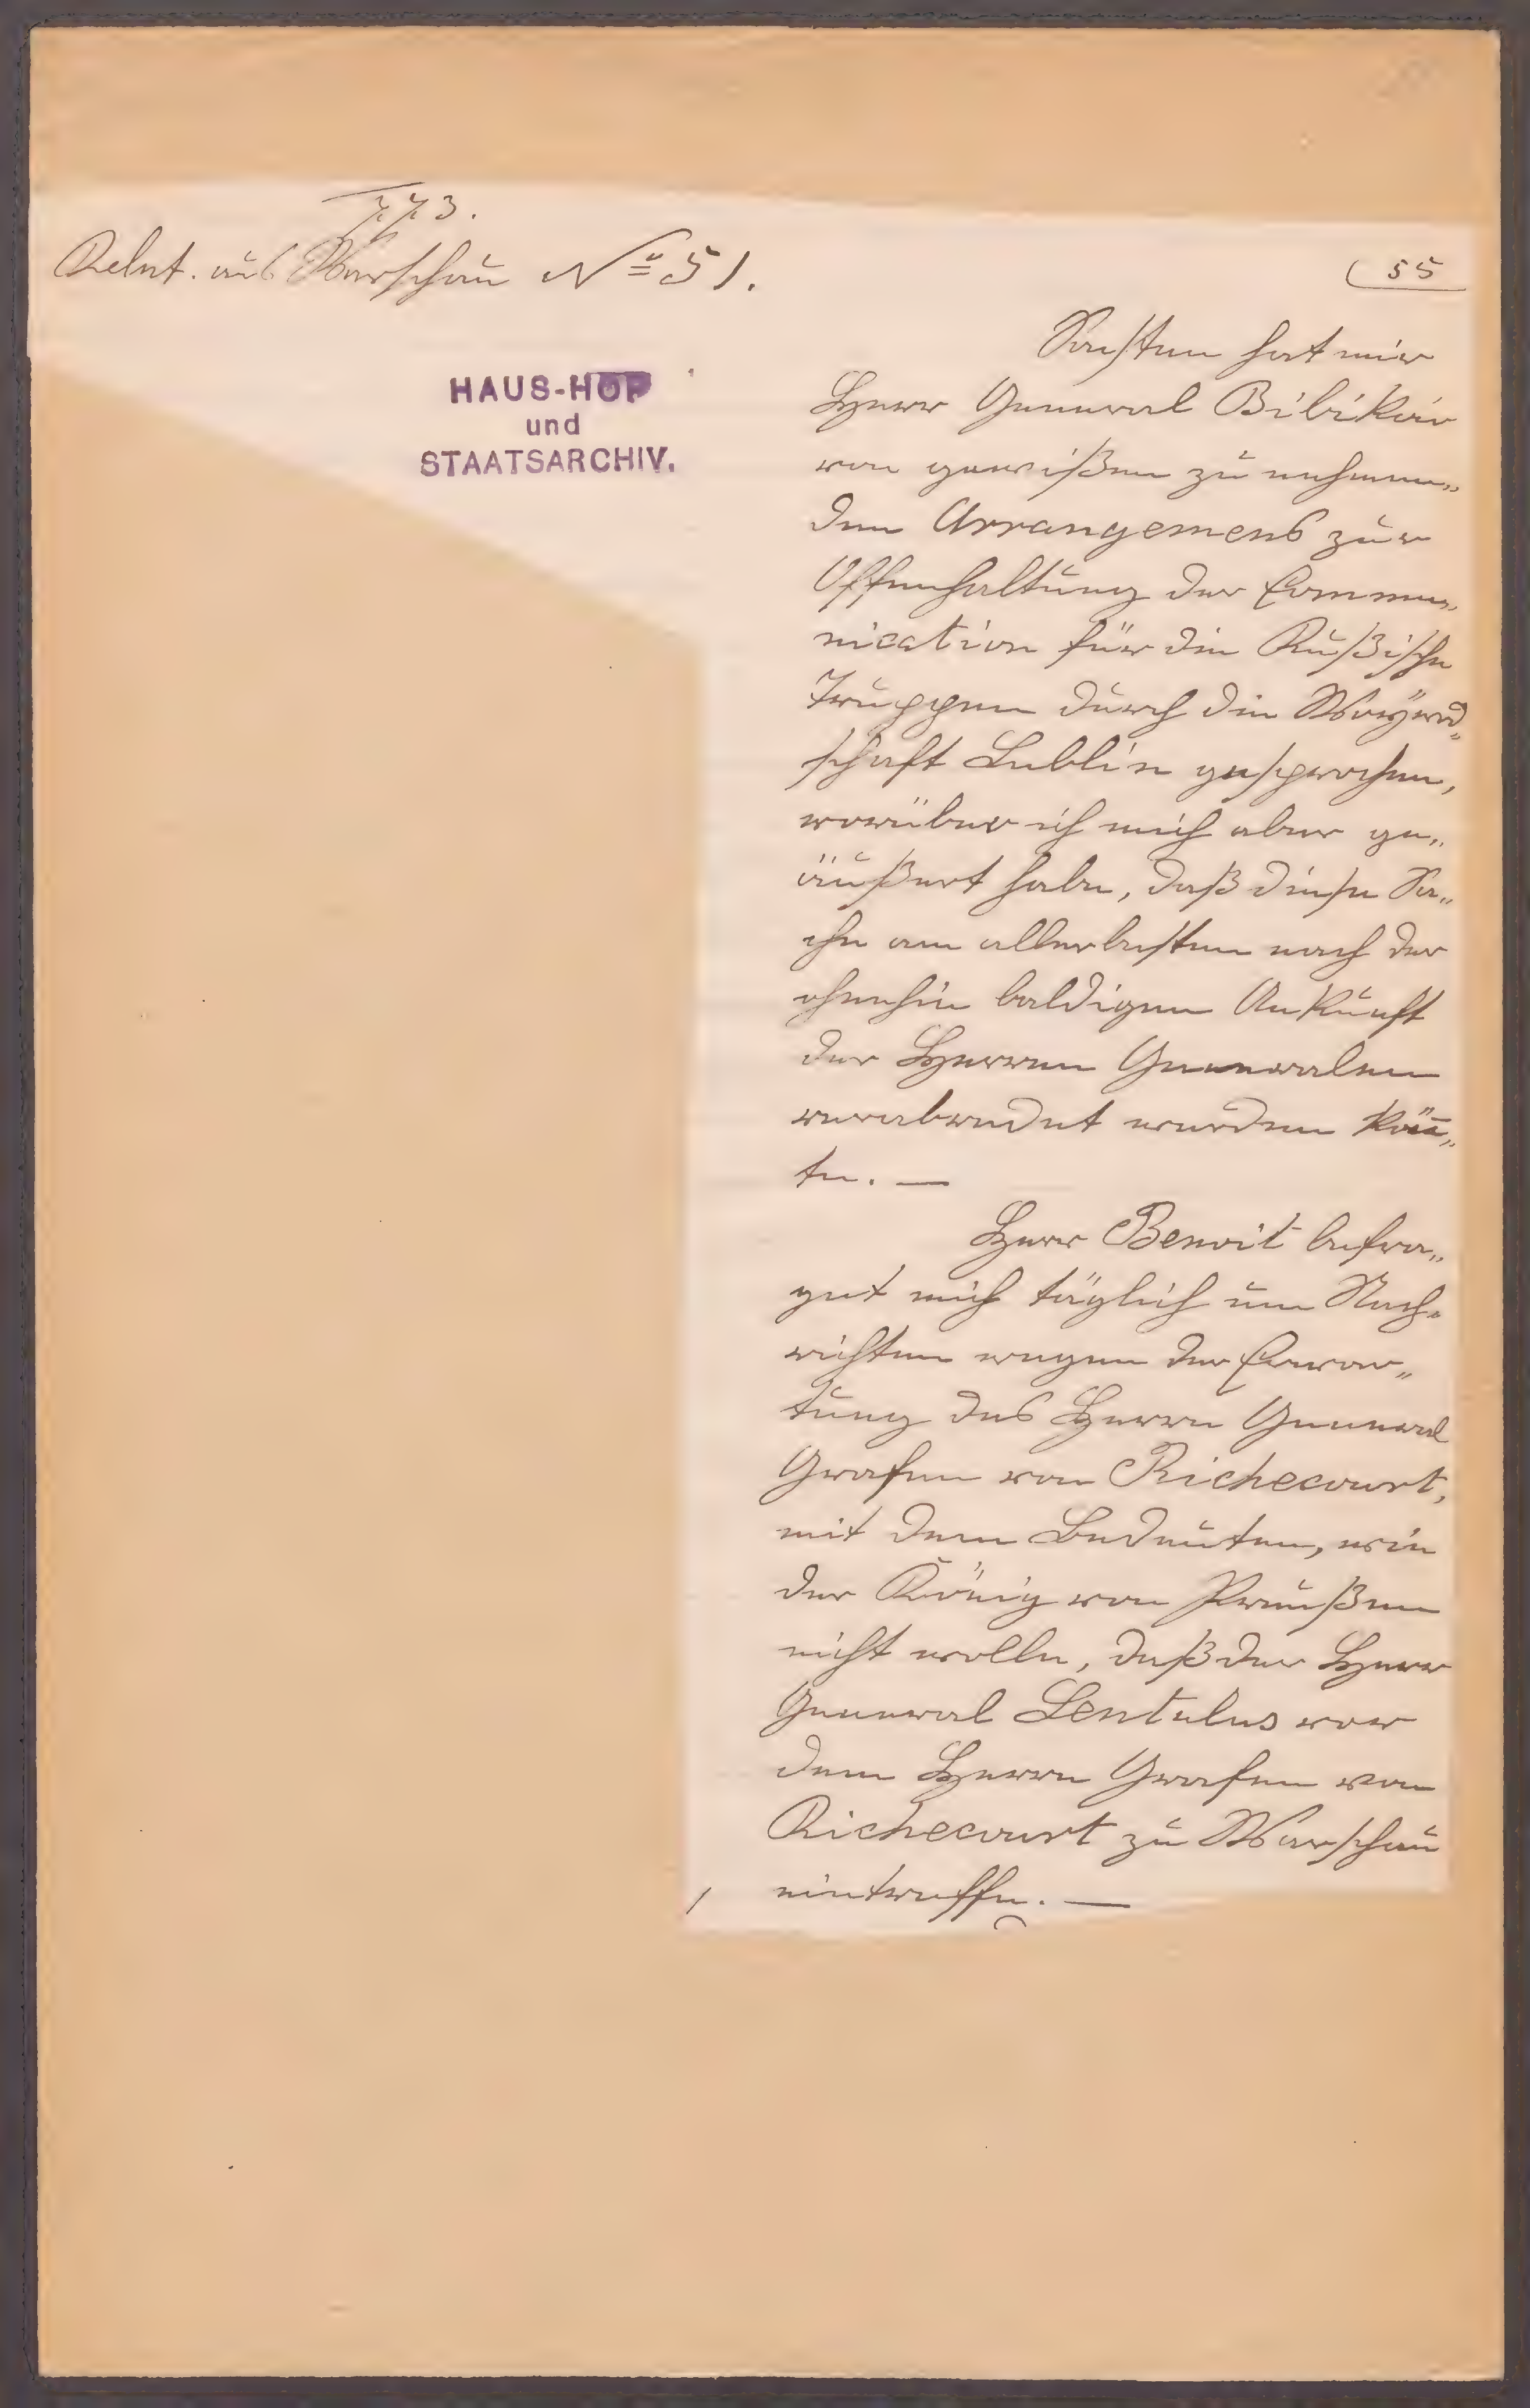 773.
Relat. aus Warschau No 51.
55
HAUS-HOF
und
STAATSARCHIV.
Sonsten hat mir
Herr General Bibikow
von gewißen zu nehmen„
den Arrangemens zur
Offenhaltung der Commu„
nication für die Rußische
Truppen durch die Woÿwod„
schaft Lublin gesprochen,
worüber ich mich aber ge„
äußert habe, daß diese Sa„
che am allerbesten nach der
ohnehin baldigen Ankunft
der Herren Generalen
verabredet werden kön̄„
te. —
Herr Benoit befra„
get mich täglich um Nach„
richten wegen der Erwar„
tung des Herrn General
Grafen von Richecourt,
mit dem Bedeuten, wie
der König von Preußen
nicht wolle, daß der Herr
General Lentulus vor
dem Herrn Grafen von
Richecourt zu Warschau
eintreffe. —